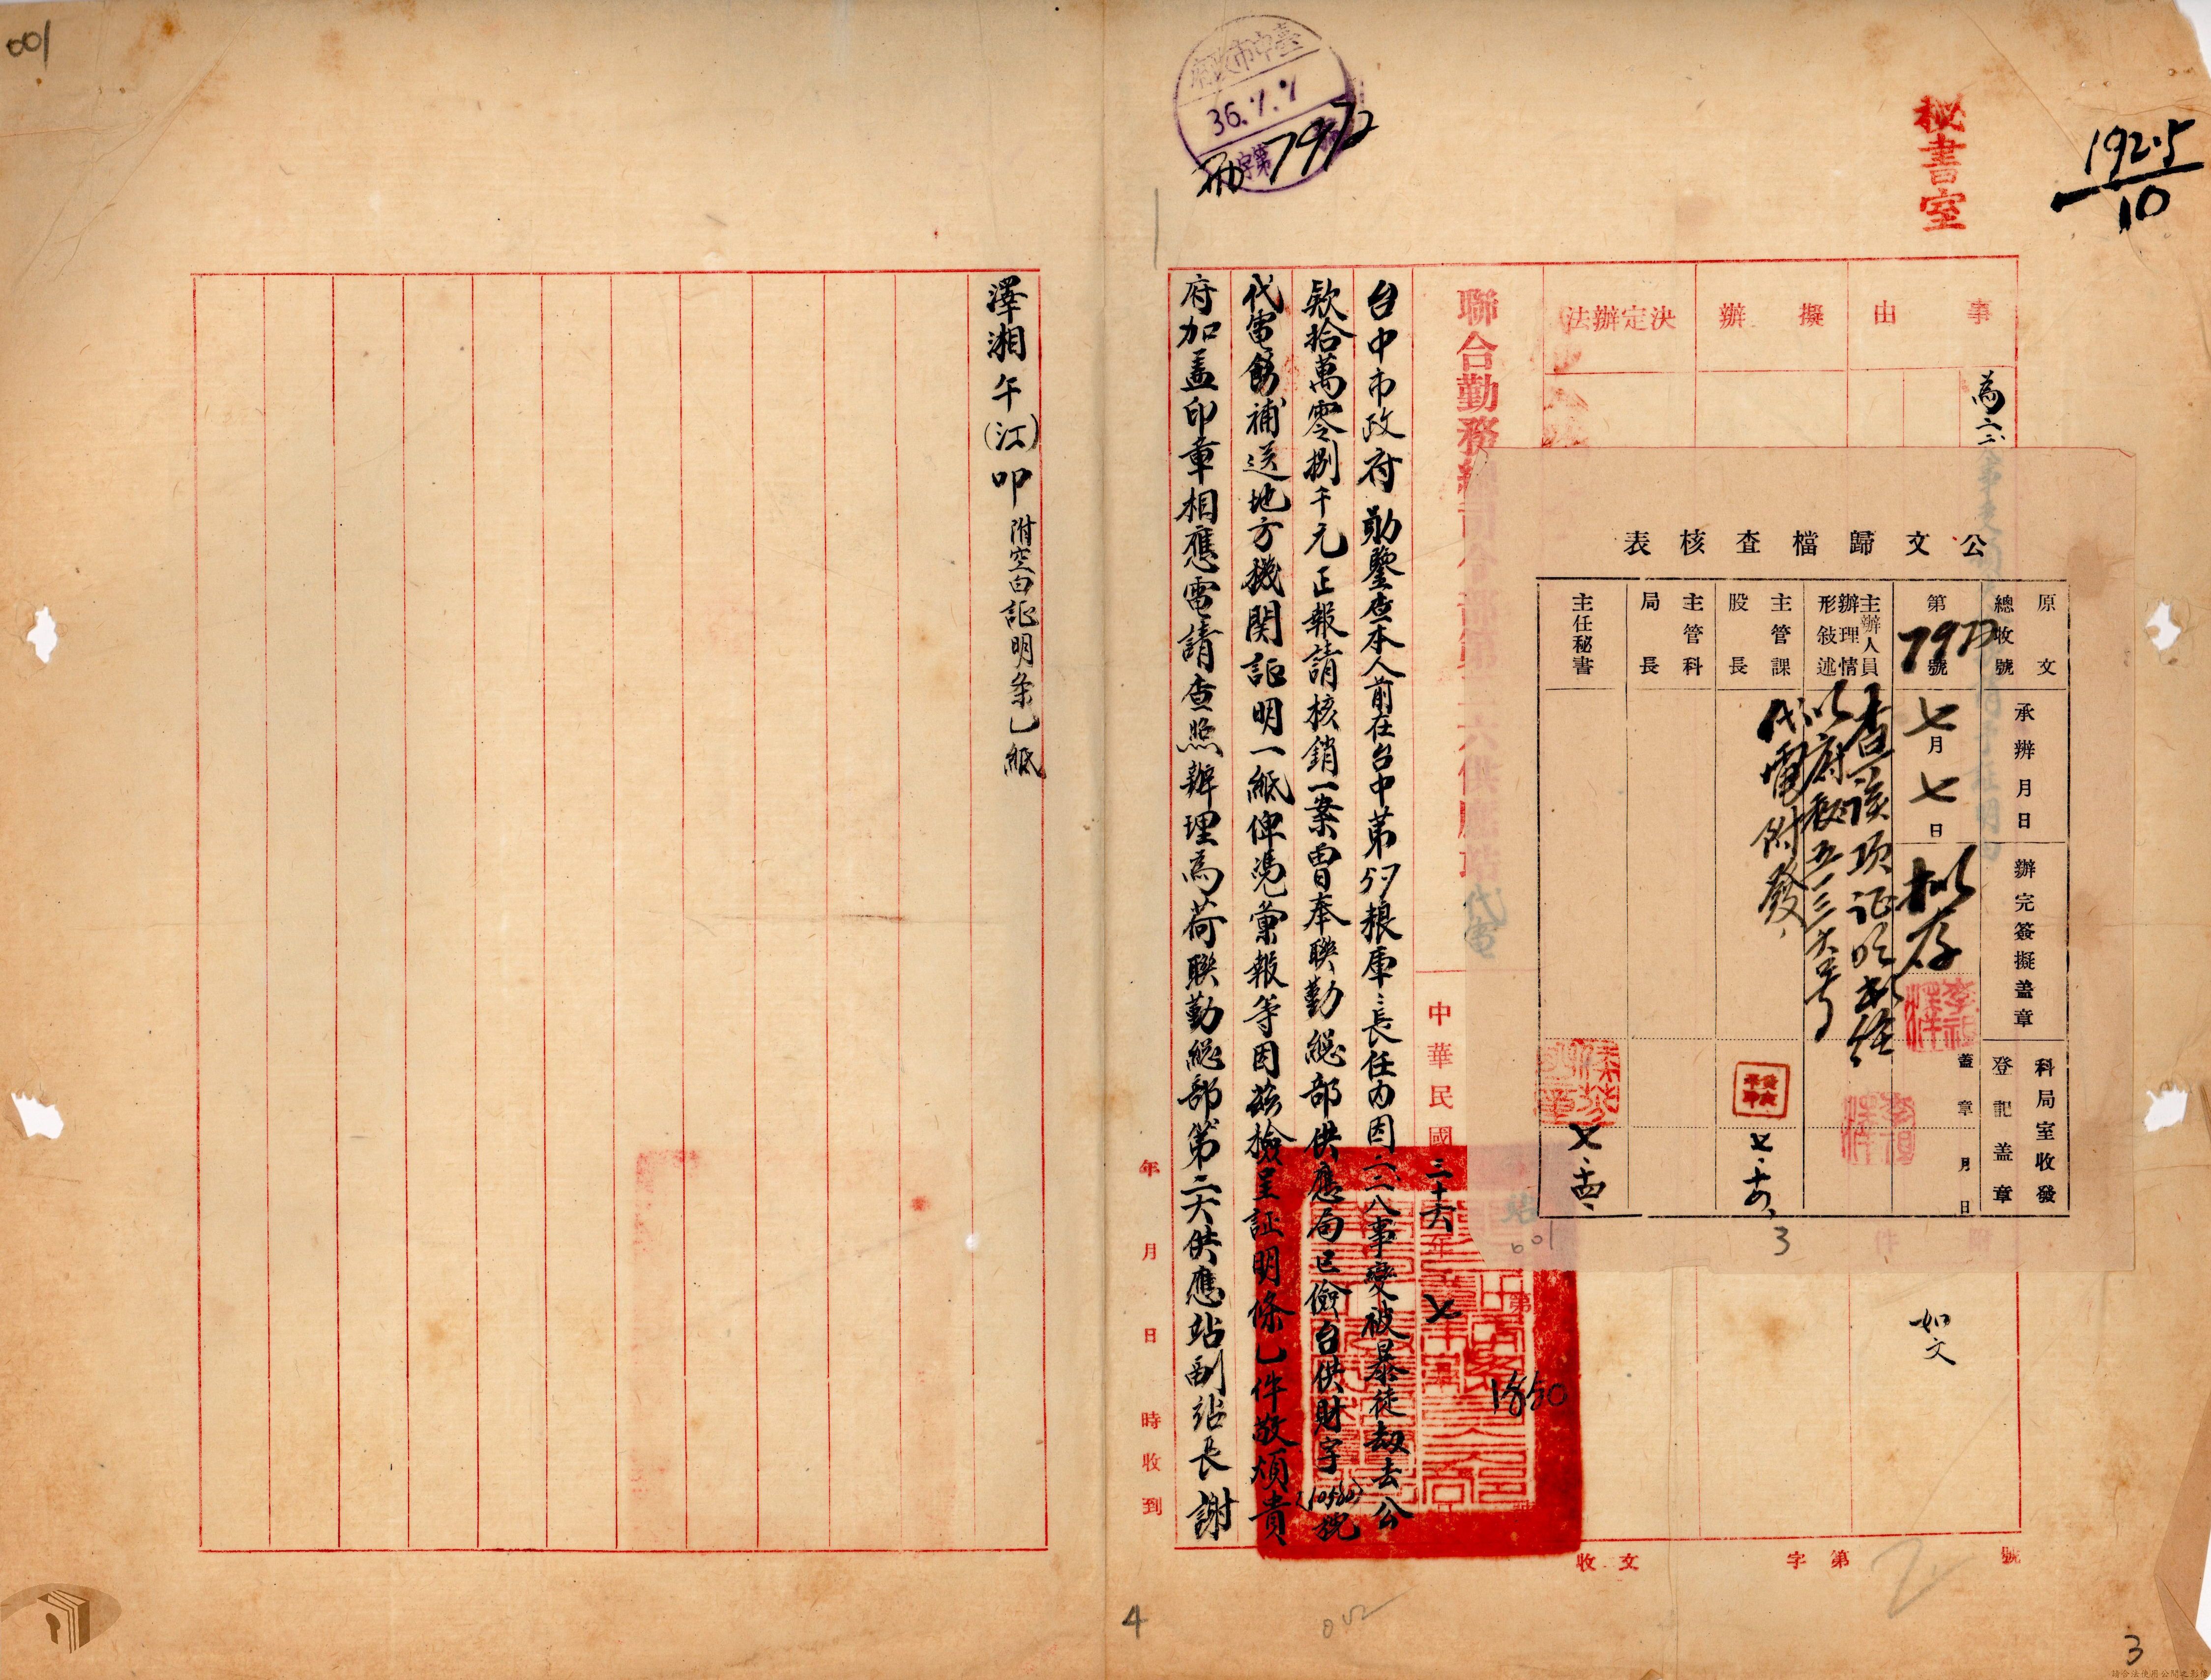 001
臺中市政府
36.7.7
字第
7972
秘書室
192.5
10
事由
擬辦
決定辦法
為二二八事變
聯合勤務總司令部第二六供應站
代電
中華民國三十六年七
第
1850
如文
附件
台中市政府勛鑒查本人前在台中第57粮庫庫長任內因二二八事變被暴徒劫去公
欵拾萬零捌千元正報請核銷一案曾奉聯勤總部供應局巳儉台供財字
號
代電飭補送地方機関証明一紙俾凴彙報等因茲檢呈証明條乙件敬煩貴
府加盖印章相應電請查照辦理為荷聯勤總部第二六供應站副站長謝
年月日時收到
澤湘午(江)叩附空白証明条乙紙
公文歸檔查核表
原文總收號
第7972號
承辦月日
七月七日
辦完簽擬蓋章
擬存
科局室收發登記蓋章
蓋章月日
主辦人員辦理情形敍述
查該項证明書經
以府秘五一三六号
代電附發
主管課股長
七、十四、
主管科局長
主任秘書
七、十四、
001
3
收文字第號
4
052
2
3
001
請合法使用公開之影像